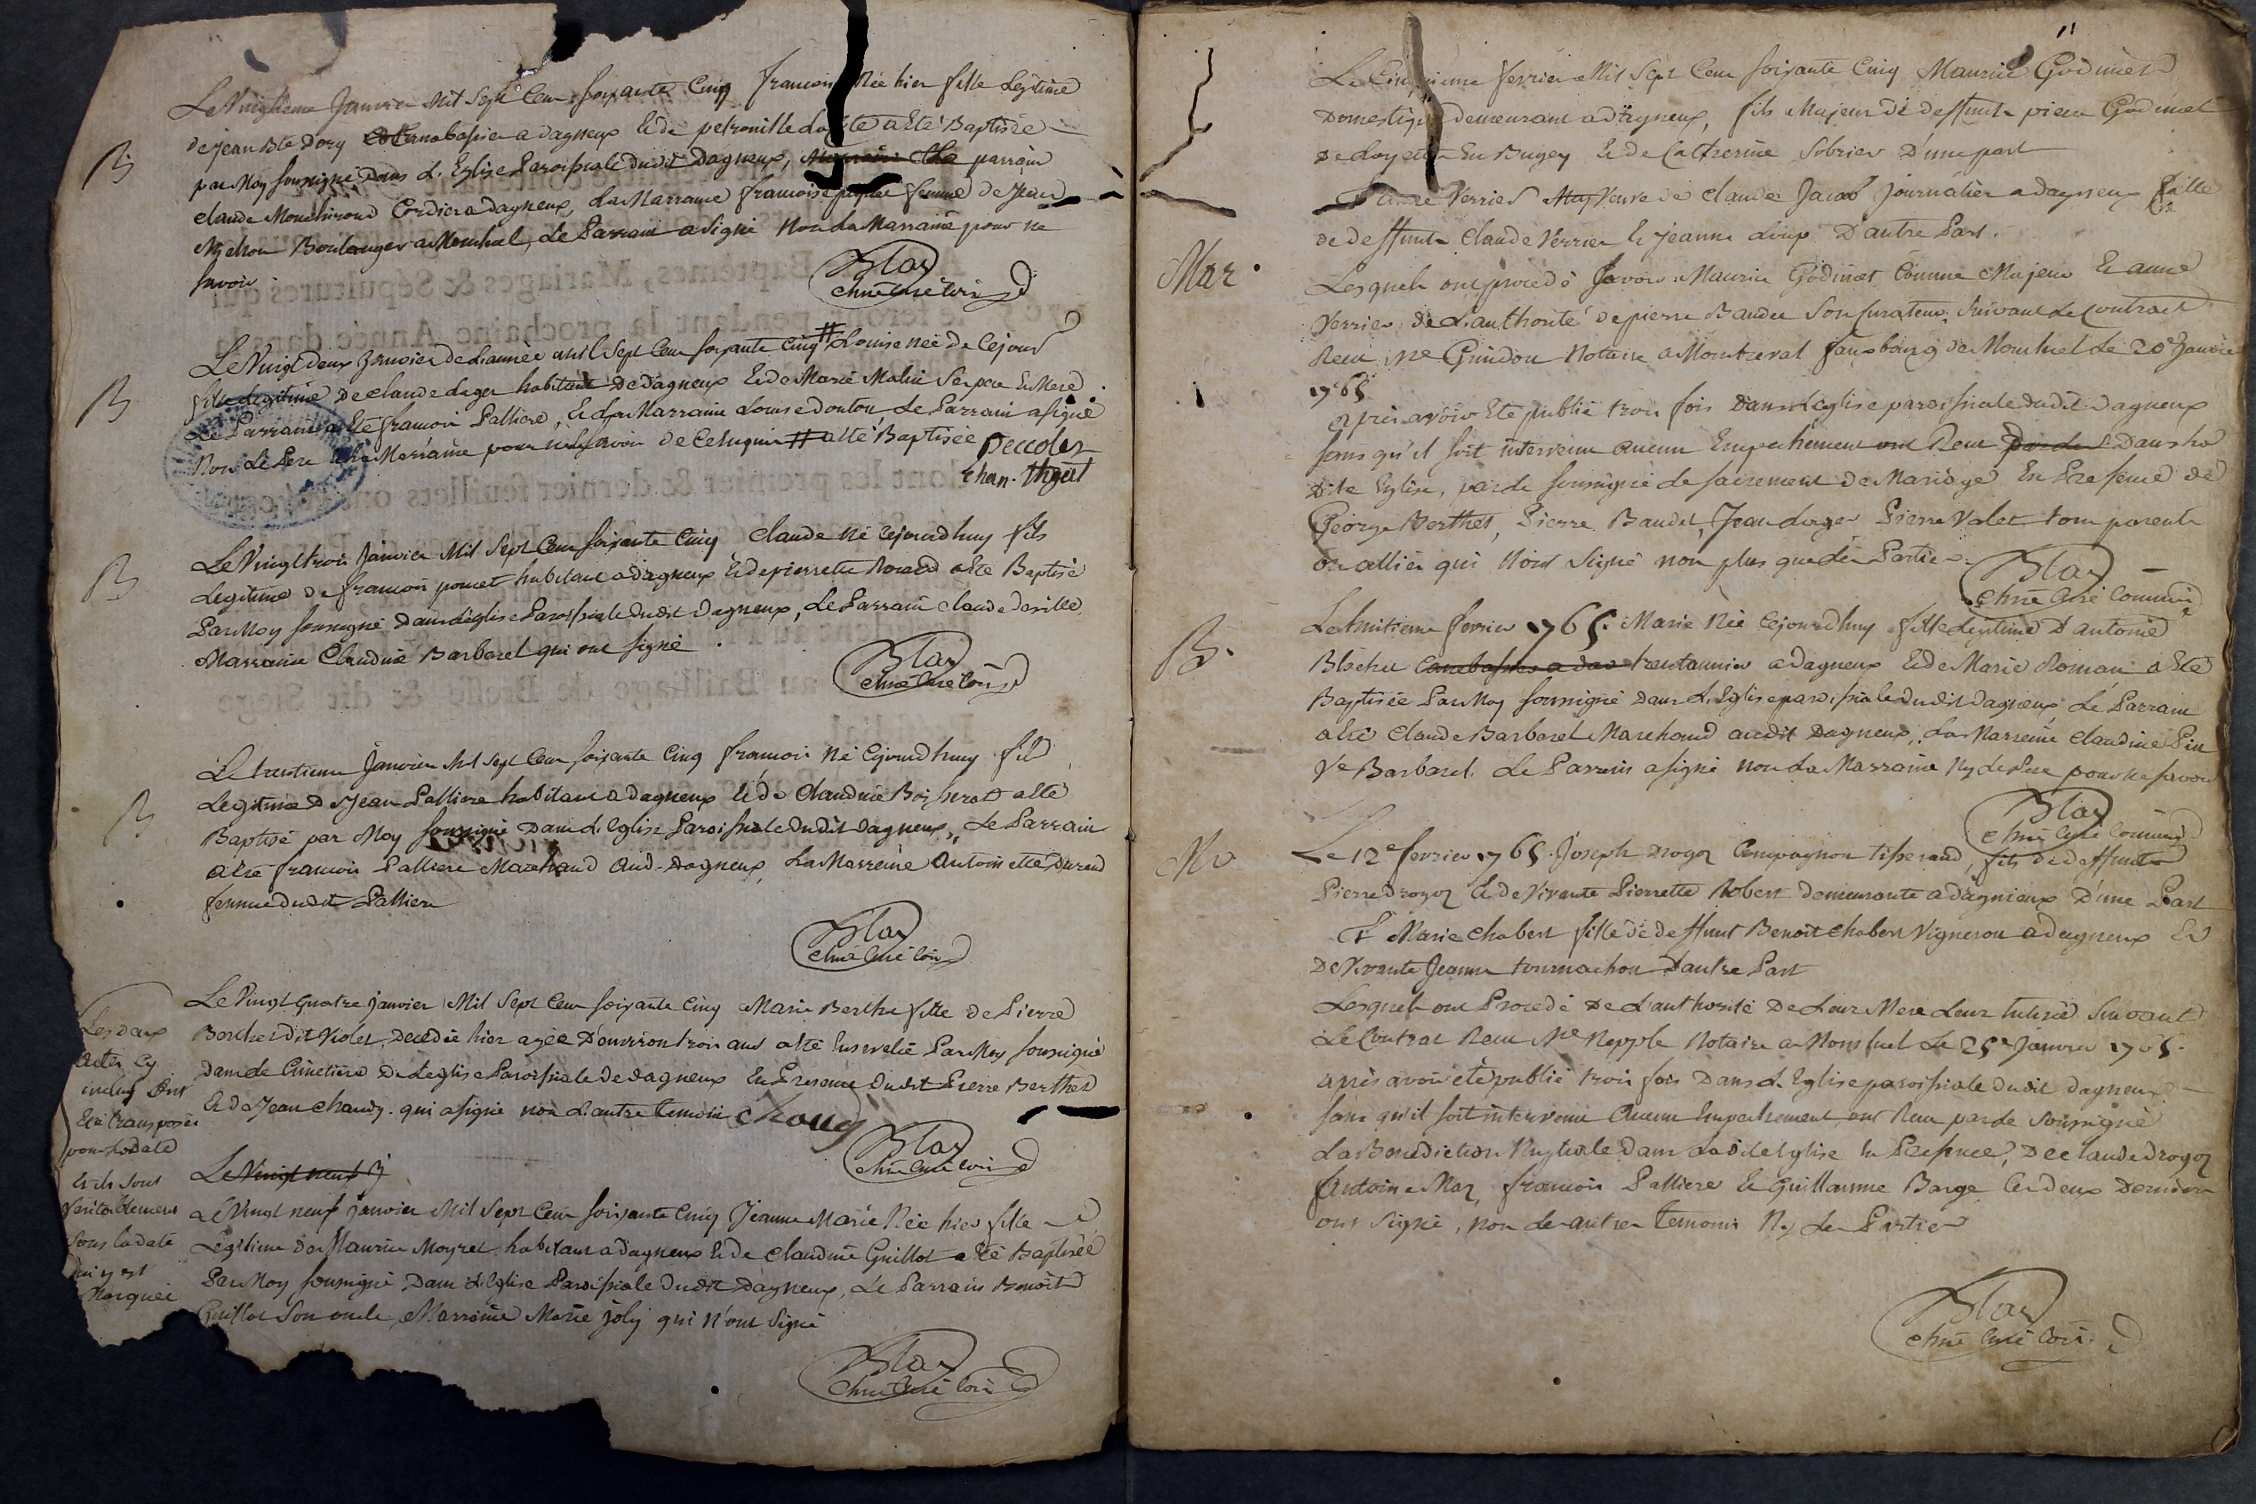 B
Le Vingtieme Janvier Mil Sept Cent soixante Cinq francois Née hier fille Legitime
de jean Bte Dory a dagneux & de petronille a Eté Baptisée
par Moy soussigné Dans L'Eglise Paroissiale dudit Dagneux, parrain
claude Cordier a dagneux, La Marraine francoise femme de Jean
Boulanger a Montluel, Le Parrain a Signé Non La Marraine pour ne
savoir
Blay
chne Curé Coin
B
Le Vingt deux Janvier de L'année mil Sept Cent soixante Cinq # Louise née de Cejour
fille Legitime De claude Loger habitant De Dagneux & de Marie Malin Ses pere & Mere
Le Parrain a Eté francois Palliere, & La Marraine Louise donton Le Parrain a signé
Non Le Pere & La Marraine pour ne savoir de Ce Enquis # a été Baptisée
B
Le Vingt trois Janvier Mil Sept Cent soixante Cinq Claude né Cejourdhuy fils
Legitime de francois poncet habitant a dagneux & de pierrette a Eté Baptisé
Par Moy soussigné Dans L'Eglise Paroissiale dudit Dagneux, Le Parrain claude
Marraine Claudine Barbaret qui ont signé
Blay
chne Curé Coin
B
Le trentieme Janvier Mil Sept Cent soixante Cinq francois Né Cejourdhuy fils
Legitime De Jean Palliere habitant a dagneux & de Claudine a Eté
Baptisé par Moy soussigné Dans L'Eglise Paroissiale dudit Dagneux, Le Parrain
a Eté francois Palliere Marchand Aud. Dagneux, La Marreine Antoinette Durand
femme dudit Palliere
Blay
chne Curé Coin
Les deux
actes Cy
inclus Ont
Eté transposés
pour La date
Et ils sont
Veritablement
Sous la date
qui y est
Marquée
Le Vingt Quatre janvier Mil Sept Cent soixante Cinq Marie Berthet fille de Pierre
Berthet dit Violet, Decedée hier agée D'environ trois ans a Eté Ensevelie Par Moy soussigné
Dans Le Cimetiere De L'eglise Paroissiale de dagneux En Presence dudit Pierre Berthet
& de Jean chaudy. qui a signé non L'autre temoin
Blay
chne Curé Coin
Le Vingt neuf j
Le Vingt neuf janvier Mil Sept Cent soixante Cinq Jeanne Marie Née hier fille
Légitime De Maurice Moyret habitant a dagneux & de Claudine Guillot a Eté Baptisée
Par Moy soussigné Dans L'Eglise Paroissiale dudit Dagneux, Le Parrain Benoit
Guillot Son oncle, Marraine Marie joly qui n'ont Signé
Blay
chne Curé Coin
11
Mar
Le Cinquieme fevrier Mil Sept Cent soixante Cinq Maurice Godinet
Domestique demeurant a dagneux, fils Majeur de deffunt pierre Godinet
De Loyette En Bugey & de Catherine Sobrier D'une part
Et Anne Verrier Veuve de claude Jacob journalier a dagneux fille
de deffunt Claude Verrier & jeanne Loup D'autre Part.
Lesquels ont procedé Savoir Maurice Godinet Comme Majeur & anne
Verrier de L'authorité de pierre Baudet Son Curateur, Suivant Le Contract
Receu Me Guindon Notaire a Montreval fauxbourg de Montluel Le 20e Janvier
1765
après avoir Eté publié trois fois Dans L'eglise paroissiale dudit dagneux
sans qu'il soit intervenu aucun Empechement ont Receu Dans La
dite Eglise, par Le soussigné Le sacrement De Mariage En Presence de
George Berthet, Pierre Baudet, Jean Loger Pierre Valet tous parents
ou alliés qui N'ont Signé non plus que Les Parties
Blay
chne Curé Commis
B.
Le huitieme fevrier 1765. Marie Née Cejourdhuy fille Legitime D'antoine
a dagneux & de Marie Romain a Eté
Baptisée Par Moy soussigné Dans L'Eglise paroissiale dudit dagneux Le Parrain
a Eté Claude Barbaret Marchand audit Dagneux, La Marreine Claudine
Ve Barbaret. Le Parrain a signé non La Marraine Ny Le Pere pour ne savoir
Blay
chne Curé Commis
Mr
Le 12e fevrier 1765. Joseph Drogoz Compagnon tisserand, fils de deffunt
Pierre Drogoz & de Vivante Pierrette Robert demeurante a dagnieux D'une Part
Et Marie Chabert fille de deffunt Benoit Chabert Vigneron a dagneux &
De Vivante Jeanne tournachon D'autre Part
Lesquels ont Procedé De L'authorité De Leur Mere Leur tutrice Suivant
Le Contrat Receu Me Nepple Notaire a Montluel Le 25e Janvier 1765.
après avoir été publié trois fois Dans L'Eglise paroissiale dudit dagneux
sans qu'il soit intervenu Aucun Empechement, ont Receu par Le Soussigné
La Benediction Nuptiale dans Ladite Eglise En Presence, De claude Drogoz
Antoine Moz, francois Palliere & Guillaume Barge Les deux Derniers
ont Signé, non Les autres temoins Ny Les Parties
Blay
chne Curé Coin